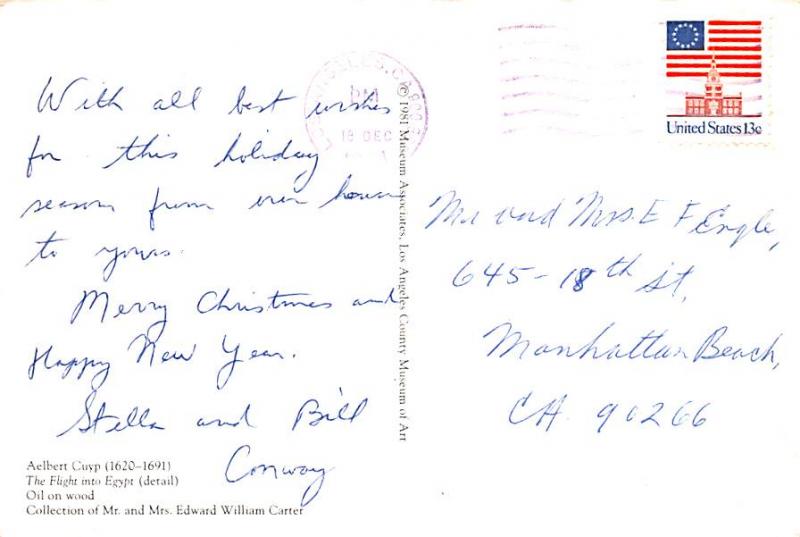 With all best wishes
for this holiday
season from our house
to yours.
Merry Christmas and
Happy New Year.
Stella and Bill
Conway
Aelbert Cuyp (1620–1691)
The Flight into Egypt (detail)
Oil on wood
Collection of Mr. and Mrs. Edward William Carter
© 1981 Museum Associates, Los Angeles County Museum of Art
LOS ANGELES, CA
PM
18 DEC
United States 13c
Mr. and Mrs. E F Engle,
645-18th St,
Manhattan Beach,
CA. 90266